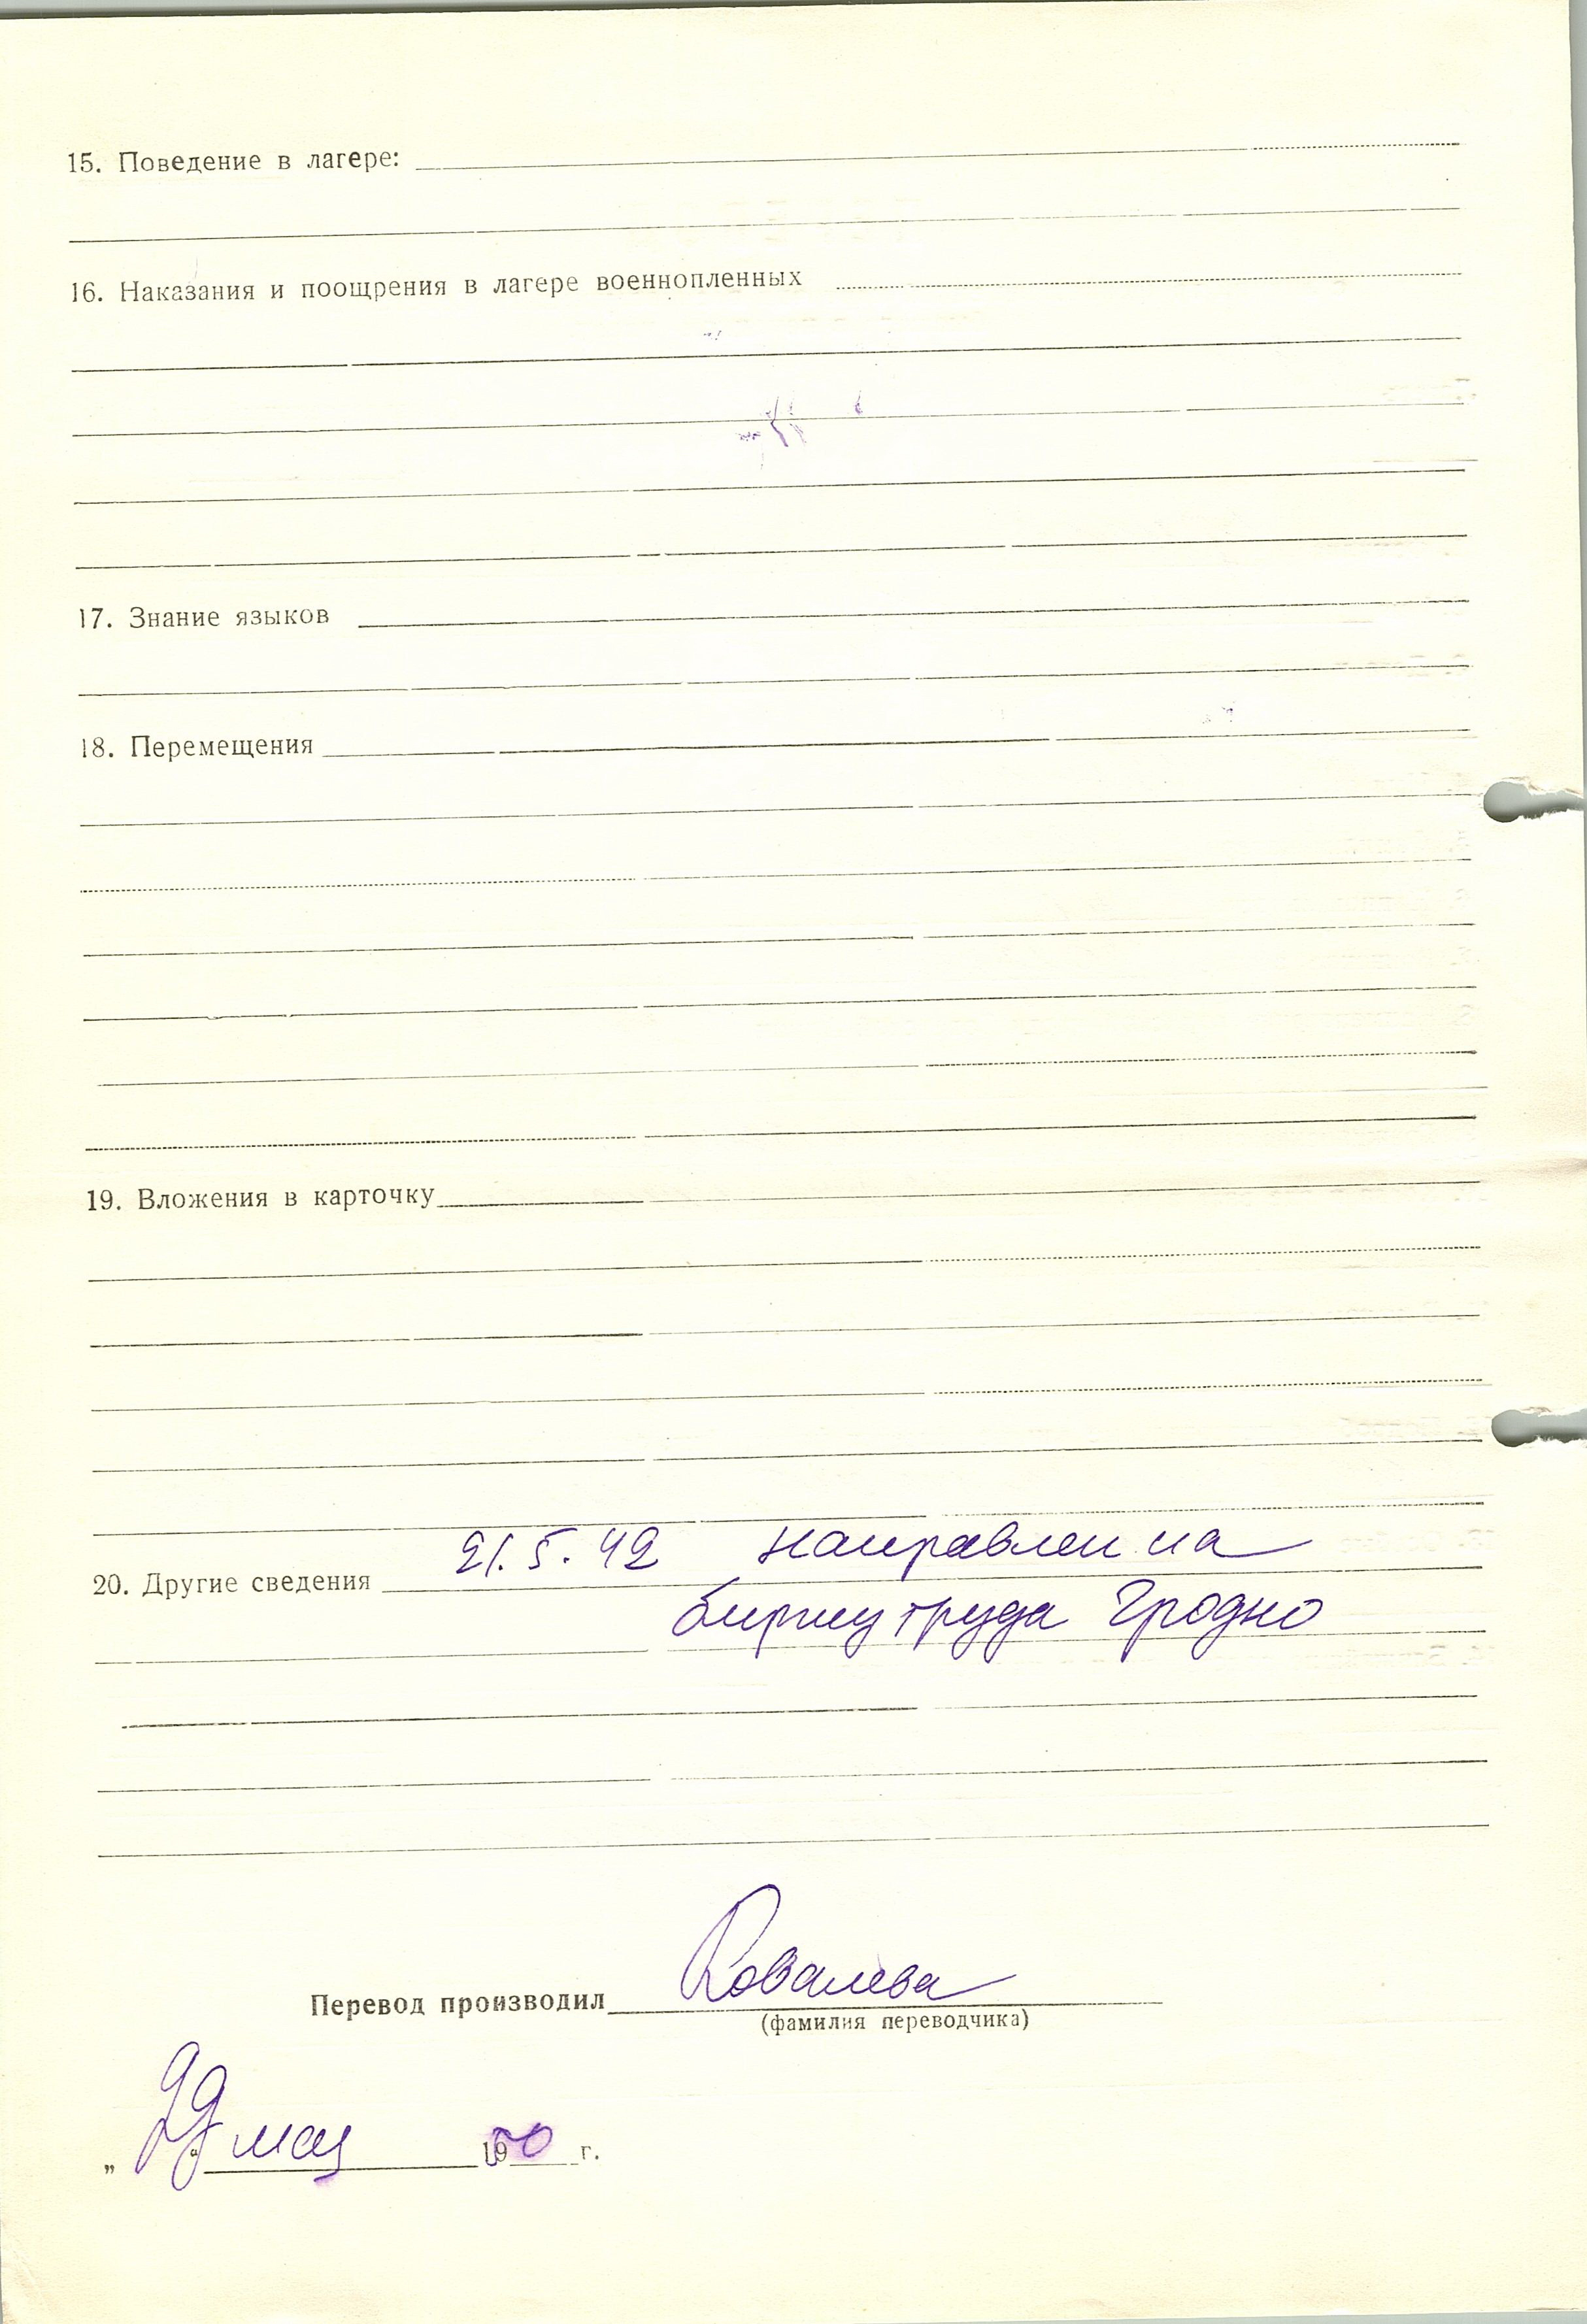 15. Поведение в лагере:
16. Наказания и поощрения в лагере военнопленных
17. Знание языков
18. Перемещения
19. Вложения в карточку
20. Другие сведения 21.5.42 направлен на
биржу труда Гродно
Перевод производил Ковалева
(фамилия переводчика)
„29“ мая 1950 г.